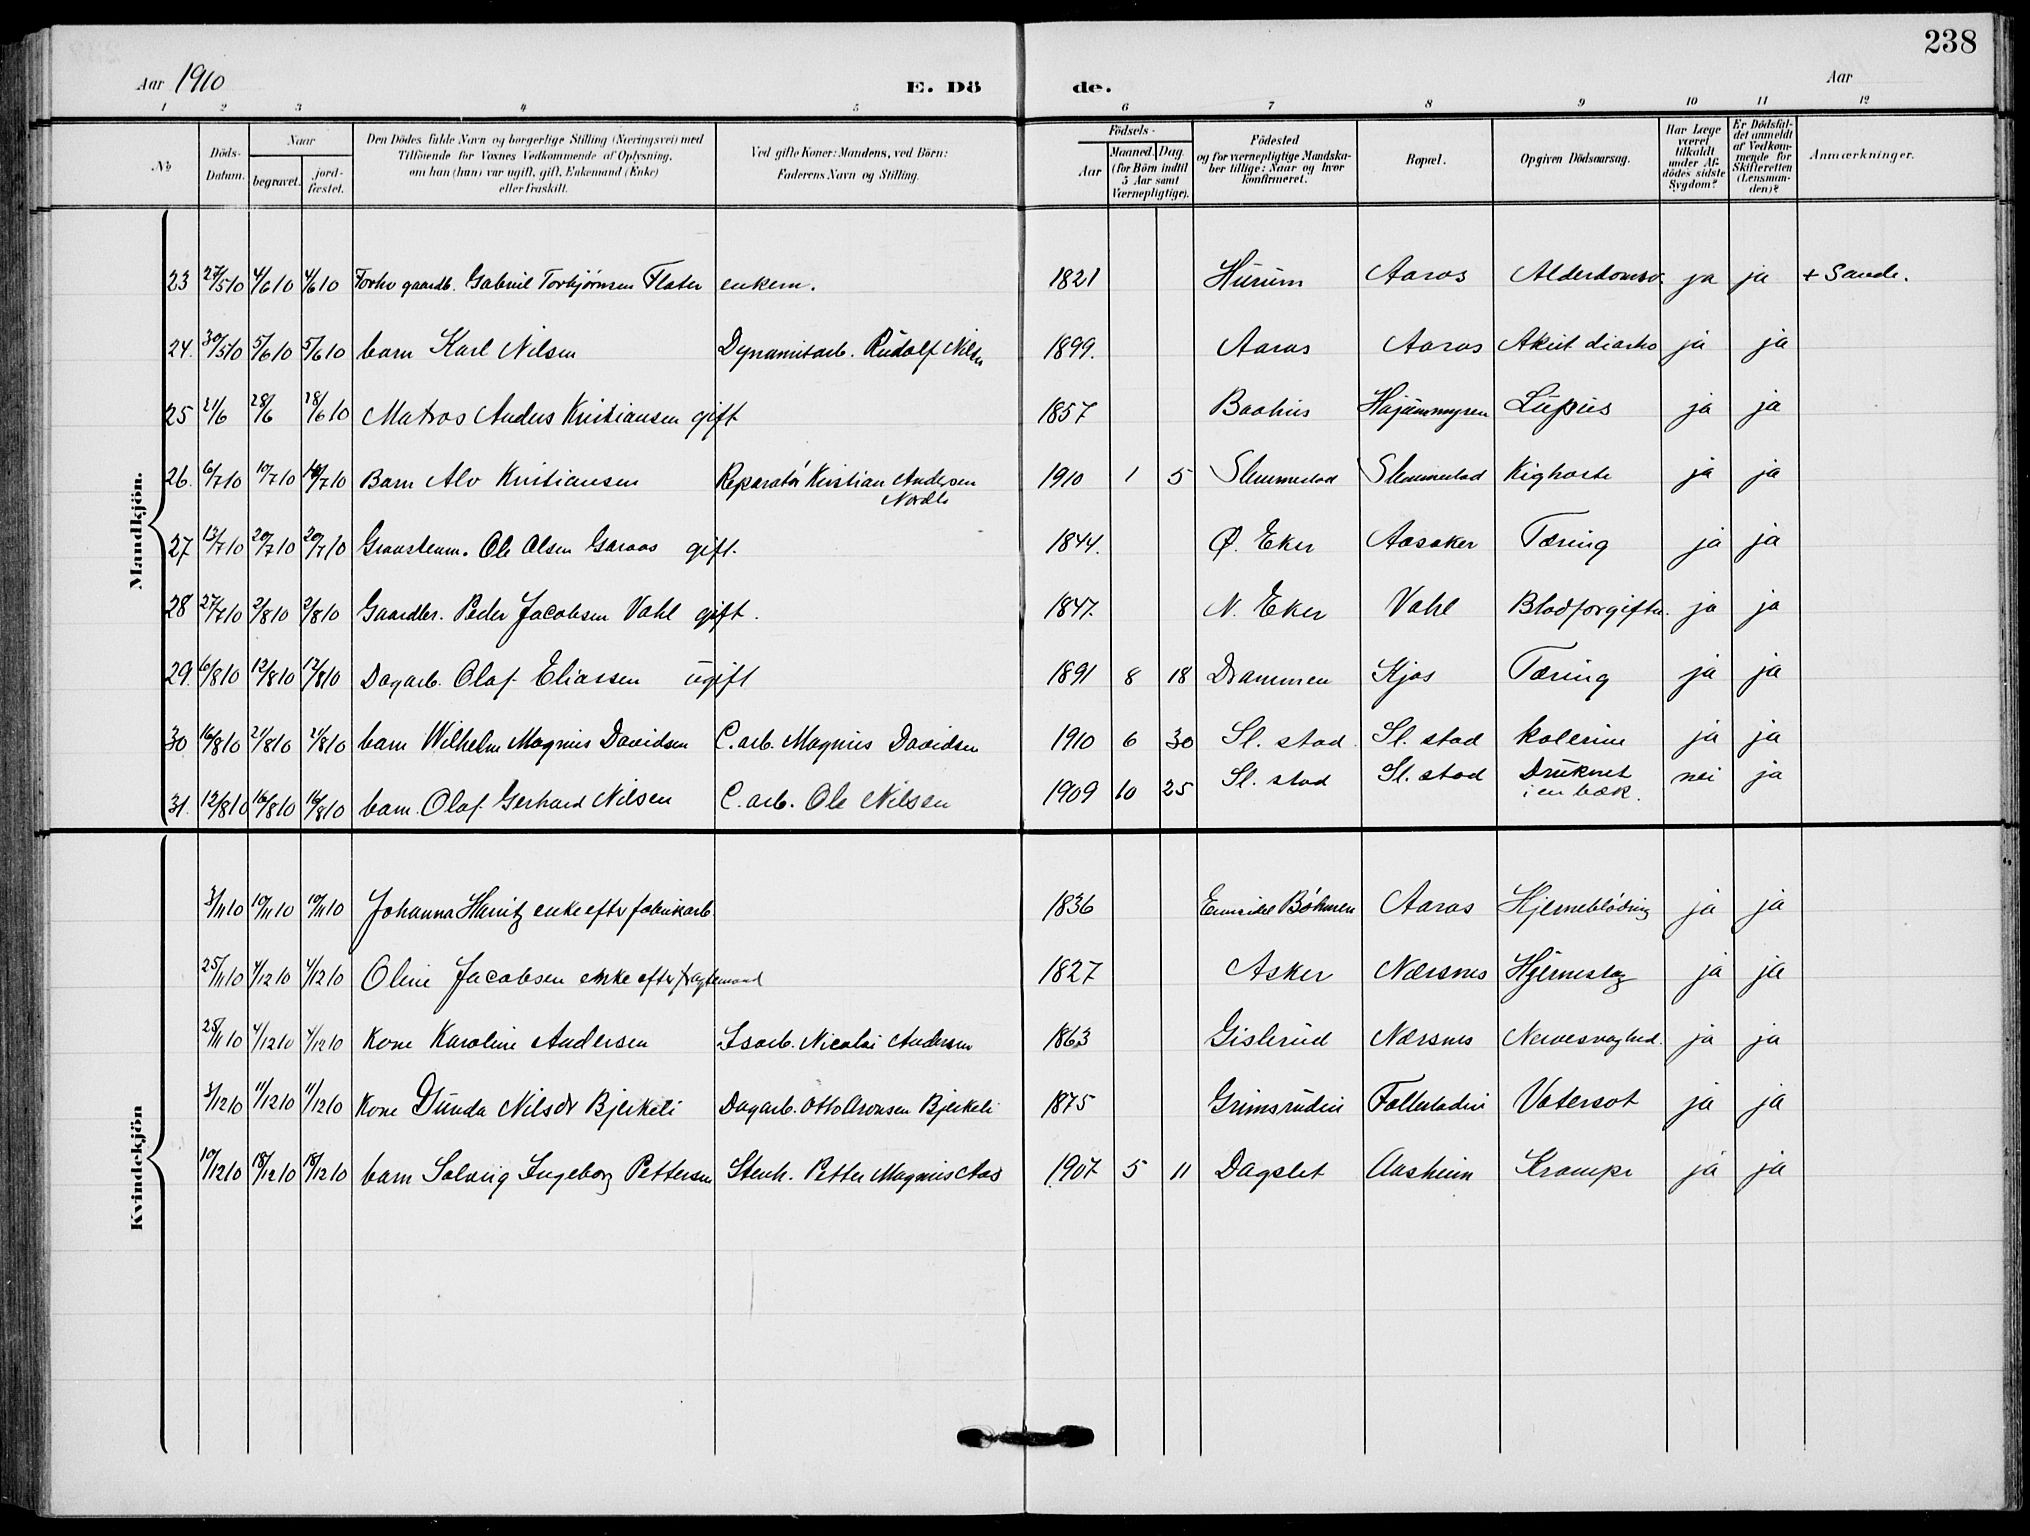 238
Aar 1910 E. Dö de. Aar
1 2 3 4 5 6 7 8 9 10 11 12
№
Döds-Datum.
Naar
begravet.
jord-fæstet.
Den Dödes fulde Navn og borgerlige Stilling (Næringsvei) med
Tilföiende for Voxnes Vedkommende af Oplysning,
om han (hun) var ugift, gift, Enkemand (Enke)
eller fraskilt.
Ved gifte Koner: Mandens, ved Börn:
Faderens Navn og Stilling.
Födsels-
Aar
Maaned. Dag.
(for Börn indtil
5 Aar samt
Værnepligtige).
Födested
og for værnepligtige Mandska-
ber tillige: Naar og hvor
konfirmeret.
Bopæl.
Opgiven Dödsaarsag.
Har Læge
været
tilkaldt
under Af-
dödes sidste
Sygdom?
Er Dödsfal-
det anmeldt
af Vedkom-
mende for
Skifteretten
(Lensman-
den)?
Anmærkninger.
Mandkjön.
23 27/5 10 4/6 10 4/6 10 Forhv gaardb. Gabriel Torbjørnsen Flater enkem. 1821 Hurum Aaros Alderdomsv. ja ja + Sande.
24. 30/5 10 5/6 10 5/6 10 barn Karl Nilsen Dynamitarb. Rudolf Nilsen 1899. Aaros Aaros Akut diarho ja ja
25 21/6 28/6 28/6 10 Matros Anders Kristiansen gift 1857 Baahus Lupus ja ja
26. 6/7 10 10/7 10 10/7 10 Barn Alv Kristiansen Reparatør Kristian Andersen 1910 1 5 Slemmestad Slemmestad Kighoste ja ja
27 13/7 10 20/7 10 20/7 10 Ole Olsen Garaas gift. 1844. Ø. Eker Aasaker Tæring ja ja
28 27/7 10 2/8 10 2/8 10 Gaardbr. Peder Jacobsen Vahl gift. 1847. N. Eker Vahl Blodforgiftn. ja ja
29. 6/8 10 12/8 10 12/8 10 Dagarb. Olaf Eliassen ugift 1891 8 18 Drammen Kjos Tæring ja ja
30 16/8 10 21/8 10 21/8 10 barn Wilhelm Magnus Davidsen C. arb. Magnus Davidsen 1910 6 30 Sl. stad. Sl. stad kolerine ja ja
31. 12/8 10 16/8 10 16/8 10 barn. Olaf Gerhard Nilsen C. arb. Ole Nilsen 1909 10 25 Sl. stad Sl. stad Druknet nei ja
i en bæk.
Kvindekjön
3/11 10 10/11 10 10/11 10 Johanna Harnitz enke efter fabrikarb. 1836 Böhmen Aaros Hjerneblödning ja ja
25/11 10 4/12 10 4/12 10 Oline Jacobsen enke efter fragtemand 1827 Asker Nærsnes Hjerneslag ja ja
25/11 10 4/12 10 4/12 10 Kone Karoline Andersen Isarb. Nicolai Andersen 1863 Gislerud Nærsnes Nervesvaghed. ja ja
3/12 10 11/12 10 11/12 10 Kone Gunda Nilsdr Bjerkeli Dagarb. Otto Aronsen Bjerkeli 1875 Grimsrudeie Vatersot ja ja
10/12 10 18/12 10 18/12 10 barn Solveig Ingeborg Pettersen Stenh. Petter Magnus Aas 1907 5 11 Dagslet Aasheim Krampe ja ja